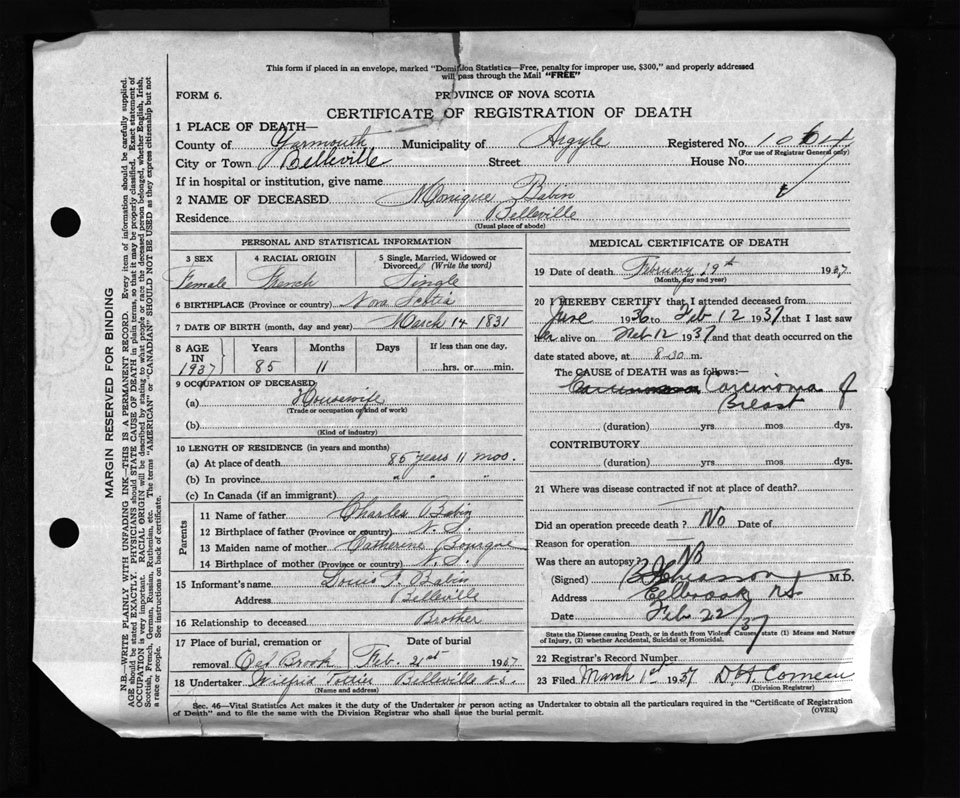 This form if placed in an envelope, marked "Dominion Statistics—Free, penalty for improper use, $300," and properly addressed
will pass through the Mail "FREE"
FORM 6.
PROVINCE OF NOVA SCOTIA
CERTIFICATE OF REGISTRATION OF DEATH
1 PLACE OF DEATH—
County of Yarmouth Municipality of Argyle Registered No. 1064
(For use of Registrar General only)
City or Town Belleville Street House No.
If in hospital or institution, give name
2 NAME OF DECEASED Monique Babin
Residence Belleville
(Usual place of abode)
PERSONAL AND STATISTICAL INFORMATION
3 SEX 4 RACIAL ORIGIN 5 Single, Married, Widowed or
Divorced (Write the word)
Female French Single
6 BIRTHPLACE (Province or country) Nova Scotia
7 DATE OF BIRTH (month, day and year) March 14 1831
8 AGE IN 1937 Years Months Days If less than one day,
85 11 hrs. or min.
9 OCCUPATION OF DECEASED
(a) Housewife
(Trade or occupation or kind of work)
(b)
(Kind of industry)
10 LENGTH OF RESIDENCE (in years and months)
(a) At place of death 85 years 11 mos.
(b) In province " " "
(c) In Canada (if an immigrant)
Parents
11 Name of father Charles Babin
12 Birthplace of father (Province or country) N. S.
13 Maiden name of mother Catherine Bourque
14 Birthplace of mother (Province or country) N. S.
15 Informant's name Louis Babin
Address Belleville
16 Relationship to deceased Brother
17 Place of burial, cremation or Date of burial
removal Brook Feb. 21st 19
18 Undertaker Wilfrid Pottier Belleville N.S.
(Name and address)
MEDICAL CERTIFICATE OF DEATH
19 Date of death February 19th 1937
(Month, day and year)
20 I HEREBY CERTIFY that I attended deceased from
June 1936 to Feb 12 1937 that I last saw
her alive on Feb 12 1937 and that death occurred on the
date stated above, at 8-30 m.
The CAUSE OF DEATH was as follows:—
Carcinoma of
Breast
(duration) yrs mos dys.
CONTRIBUTORY
(duration) yrs mos dys.
21 Where was disease contracted if not at place of death?
Did an operation precede death? No Date of
Reason for operation
Was there an autopsy? No
(Signed) M.D.
Address Eelbrook N.S.
Date Feb 22/37
State the Disease causing Death, or in death from Violent Causes, state (1) Means and Nature
of Injury, (2) whether Accidental, Suicidal or Homicidal.
22 Registrar's Record Number
23 Filed March 1st 1937 Comeau
(Division Registrar)
Sec. 46—Vital Statistics Act makes it the duty of the Undertaker or person acting as Undertaker to obtain all the particulars required in the "Certificate of Registration
of Death" and to file the same with the Division Registrar who shall issue the burial permit. (OVER)
MARGIN RESERVED FOR BINDING
N.B.—WRITE PLAINLY WITH UNFADING INK—THIS IS A PERMANENT RECORD. Every item of information should be carefully supplied.
AGE should be stated EXACTLY. PHYSICIANS should STATE CAUSE OF DEATH in plain terms, so that it may be properly classified. Exact statement of
OCCUPATION is very important. RACIAL ORIGIN will be described by stating to what people or race the deceased person belonged, whether English, Irish,
Scottish, French, German, Russian, Ruthenian, etc. The terms "AMERICAN" or "CANADIAN" SHOULD NOT BE USED as they express citizenship but not
a race or people. See instructions on back of certificate.